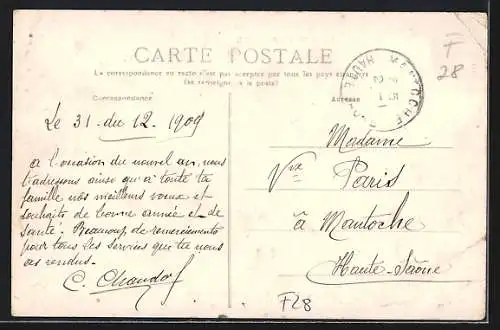 CARTE POSTALE
La correspondance au recto n'est pas acceptée par tous les pays étrangers
(Se renseigner à la poste)
Correspondance
Adresse
F
28
MANTOCHE
HAUTE
Le 31 du 12 1909
A l'occasion du nouvel an, nous
t'adressons ainsi qu'à toute ta
famille nos meilleurs voeux et
souhaits de bonne année et de
santé. Beaucoup de remerciements
pour tous les services que tu nous
as rendus.
Madame
Vve Paris
à Mantoche
Haute-Saône
F28